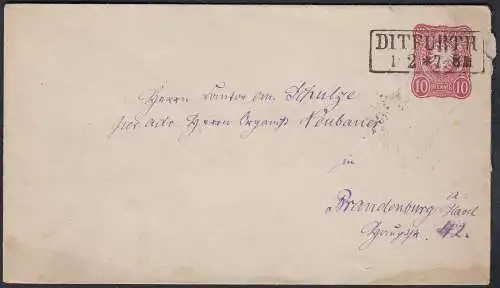 DITFURTH
1 2 *7 8
10 PFENNIG 10
Herrn Cantor em. Schulze
per adr. Herrn Organist Neubauer
in
Brandenburg a.
Havel
42.